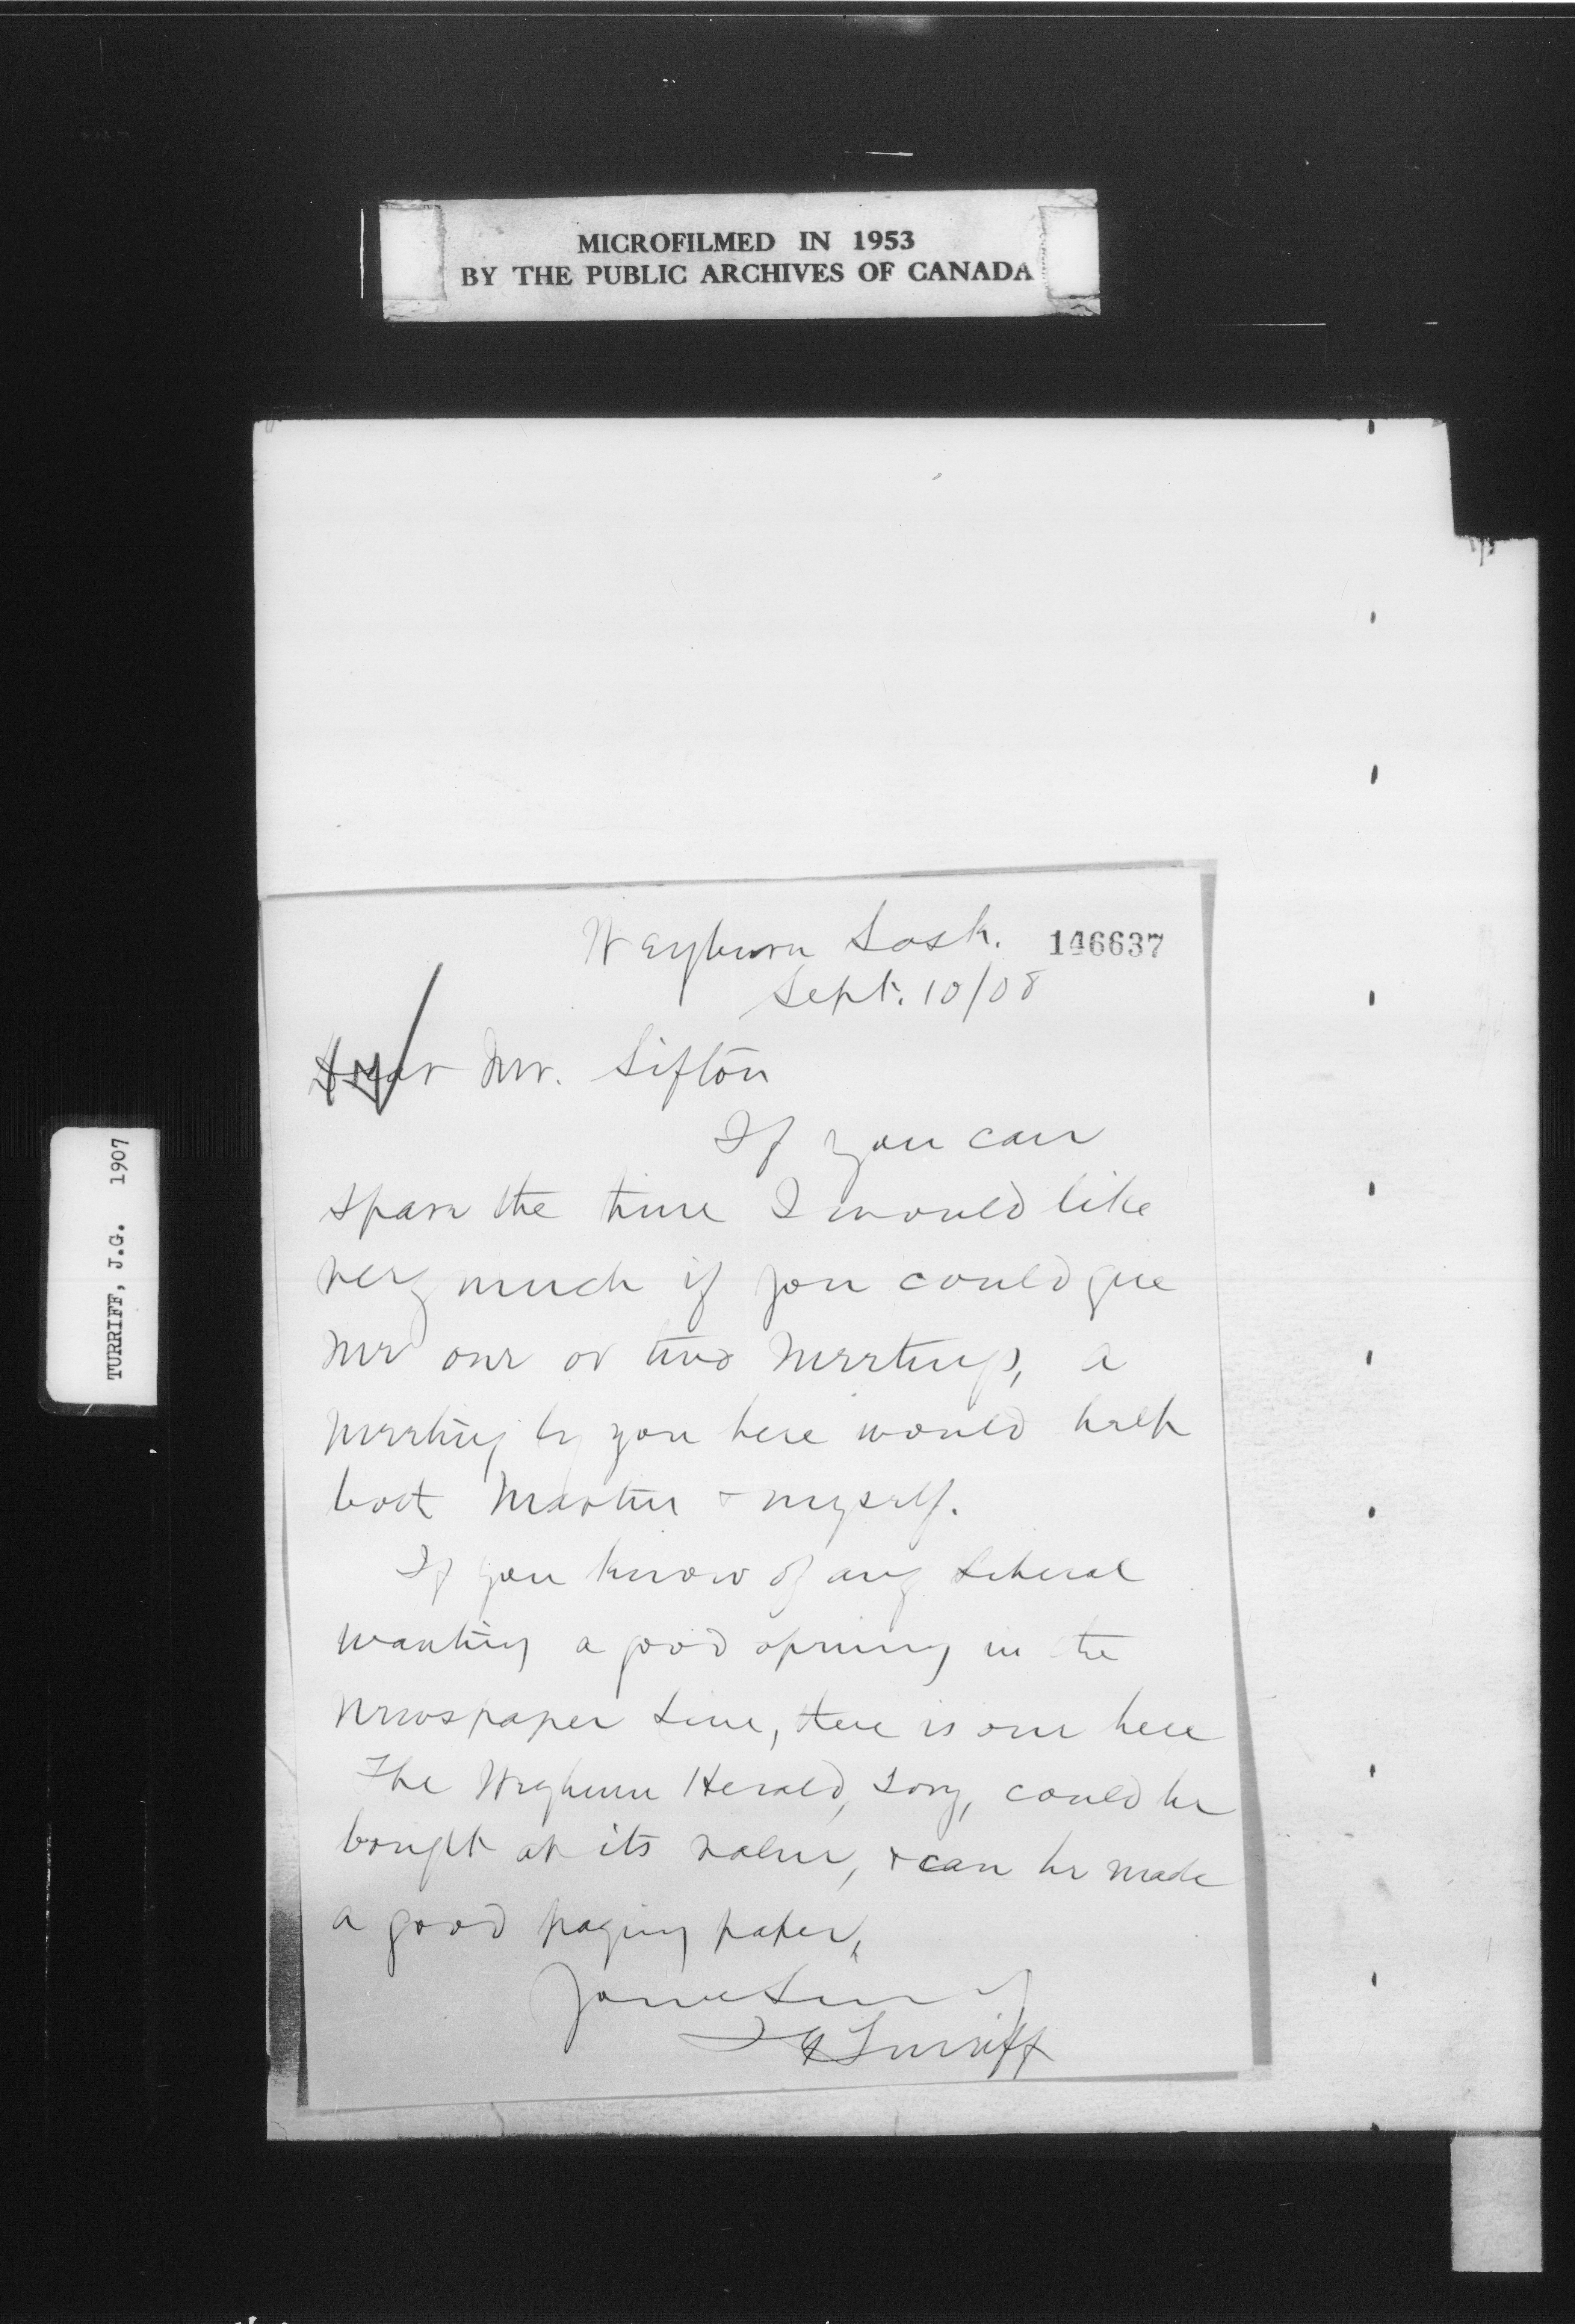 MICROFILMED IN 1953
BY THE PUBLIC ARCHIVES OF CANADA
TURRIFF, J.G. 1907
Weyburn Sask. 146637
Sept. 10/08
Dear Mr. Sifton
If you can
spare the time I would like
very much if you could give
me one or two meetings, a
meeting by you here would help
both Martin & myself.
If you know of any Liberal
wanting a good opening in the
newspaper line, there is one here
The Weyburn Herald, Tory, could be
bought at its value, & can be made
a good paying paper,
Yours
J G Turriff